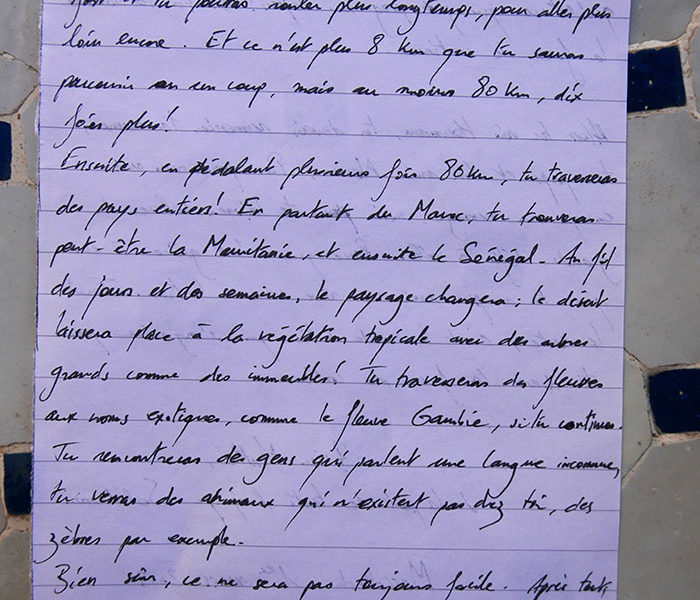 fort et tu pourras rouler plus longtemps, pour aller plus
loin encore. Et ce n'est plus 8 km que tu sauras
parcourir en un coup, mais au moins 80 km, dix
fois plus!
Ensuite, en pédalant plusieurs fois 80 km, tu traverseras
des pays entiers! En partant du Maroc, tu trouveras
peut-être la Mauritanie, et ensuite le Sénégal. Au fil
des jours et des semaines, le paysage changera; le désert
laissera place à la végétation tropicale avec des arbres
grands comme des immeubles! Tu traverseras des fleuves
aux noms exotiques, comme le fleuve Gambie, si tu continues.
Tu rencontreras des gens qui parlent une langue inconnue,
tu verras des animaux qui n'existent pas chez toi, des
zèbres par exemple.
Bien sûr, ce ne sera pas toujours facile. Après tout,